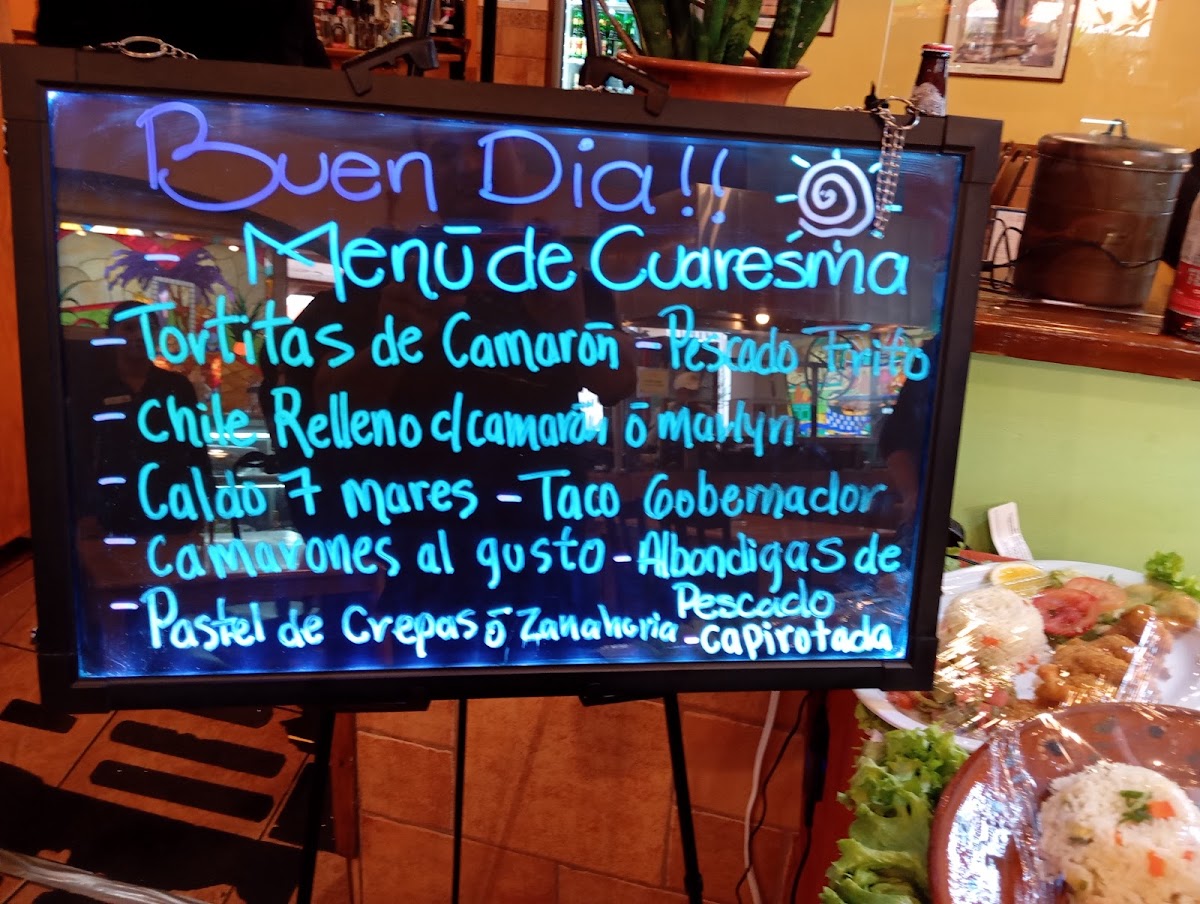 Buen Dia!!
- Menū de Cuaresma
- Tortitas de Camarōn - Pescado Frito
- Chile Relleno c/camarōn ō marlyn
- Caldo 7 mares - Taco Gobernador
- Camarones al gusto - Albondigas de Pescado
- Pastel de Crepas ō Zanahoria - Capirotada